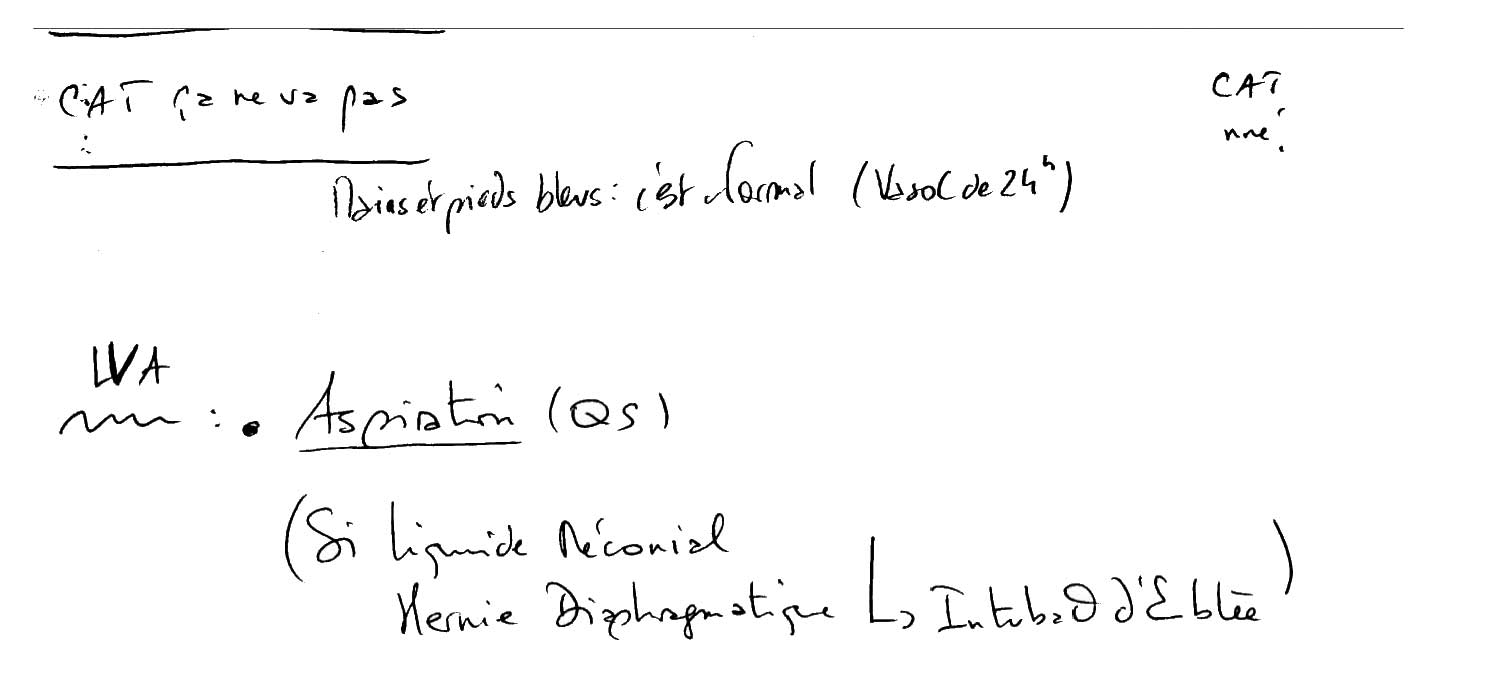 CAT ça ne va pas
:
CAT
nné :
Mains et pieds bleus : c'est Normal (VasoC de 24h)
LVA
: • Aspiration (QS)
(Si Liquide Méconial
Hernie Diaphragmatique ↳ Intuba° d'Emblée)